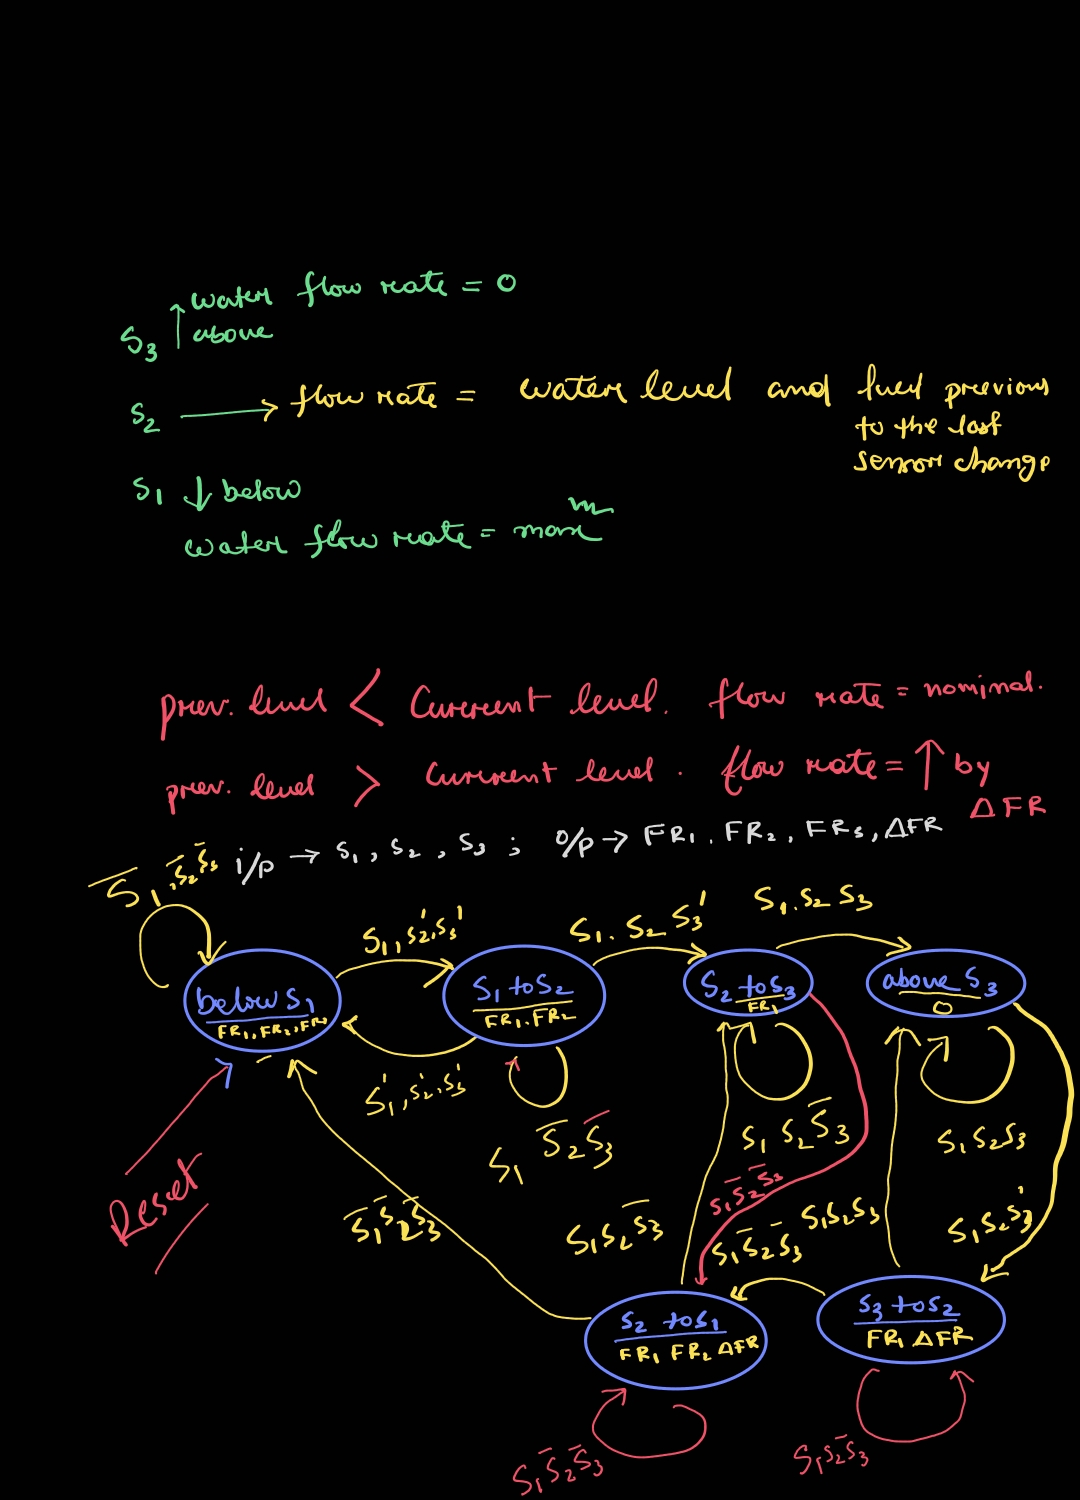 water flow rate = 0
S₃ ↑ above
S₂ → flow rate = water level and level previous
to the last
sensor change
S₁ ↓ below
water flow rate = max m
prev. level < Current level. flow rate = nominal.
prev. level > Current level. flow rate = ↑ by
ΔFR
i/p → S₁, S₂, S₃ ; o/p → FR₁, FR₂, FR₃, ΔFR
S̅₁, S̅₂ S̅₃
S₁, S₂', S₃'
S₁. S₂ S₃'
S₁. S₂ S₃
below S₁
FR₁, FR₂, FR₃
S₁ to S₂
FR₁. FR₂
S₂ to S₃
FR₁
above S₃
0
S₁', S₂', S₃'
S₁ S̅₂ S̅₃
S₁ S₂ S̅₃
S₁ S₂ S₃
Reset
S̅₁ S̅₂ S̅₃
S₁ S₂ S̅₃
S₁ S̅₂ S̅₃
S₁ S̅₂ S̅₃
S₁ S₂ S₃
S₁ S₂ S₃'
S₂ to S₁
FR₁ FR₂ ΔFR
S₃ to S₂
FR₁ ΔFR
S₁ S̅₂ S̅₃
S₁ S₂ S̅₃